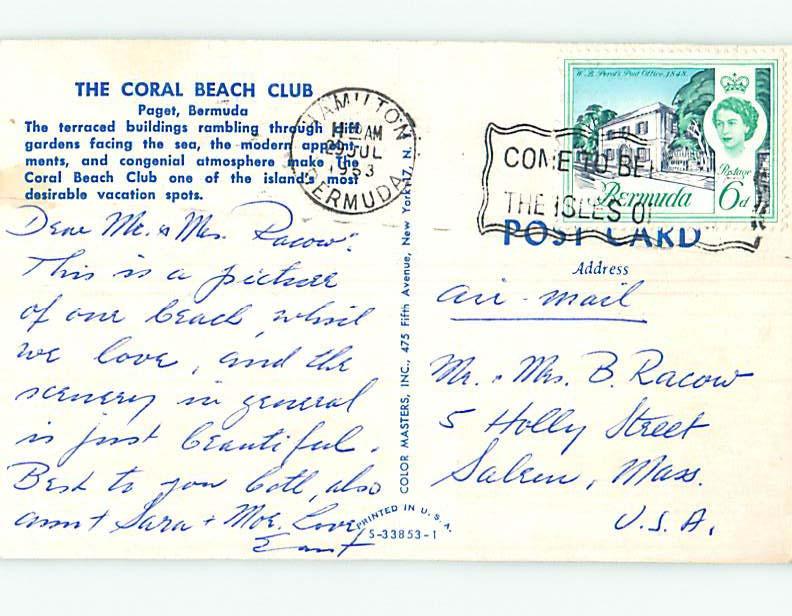 THE CORAL BEACH CLUB
Paget, Bermuda
The terraced buildings rambling through
gardens facing the sea, the modern
ments, and congenial atmosphere make the
Coral Beach Club one of the island's most
desirable vacation spots.
Dear Mr. & Mrs. Racow:
This is a picture
of our beach, which
we love, and the
scenery in general
is just beautiful.
Best to you both, also
Sara + Moe. Love,
COLOR MASTERS, INC., 475 Fifth Avenue, New York 17, N.
PRINTED IN U. S. A.
S-33853-1
HAMILTON
AM
JUL
BERMUDA
W.B. Perot's Post Office, 1848.
Postage
Bermuda
6d
COME TO BE
THE ISLES O
POST CARD
Address
air-mail
Mr. & Mrs. B. Racow
5 Holly Street
Salem, Mass.
U.S.A.